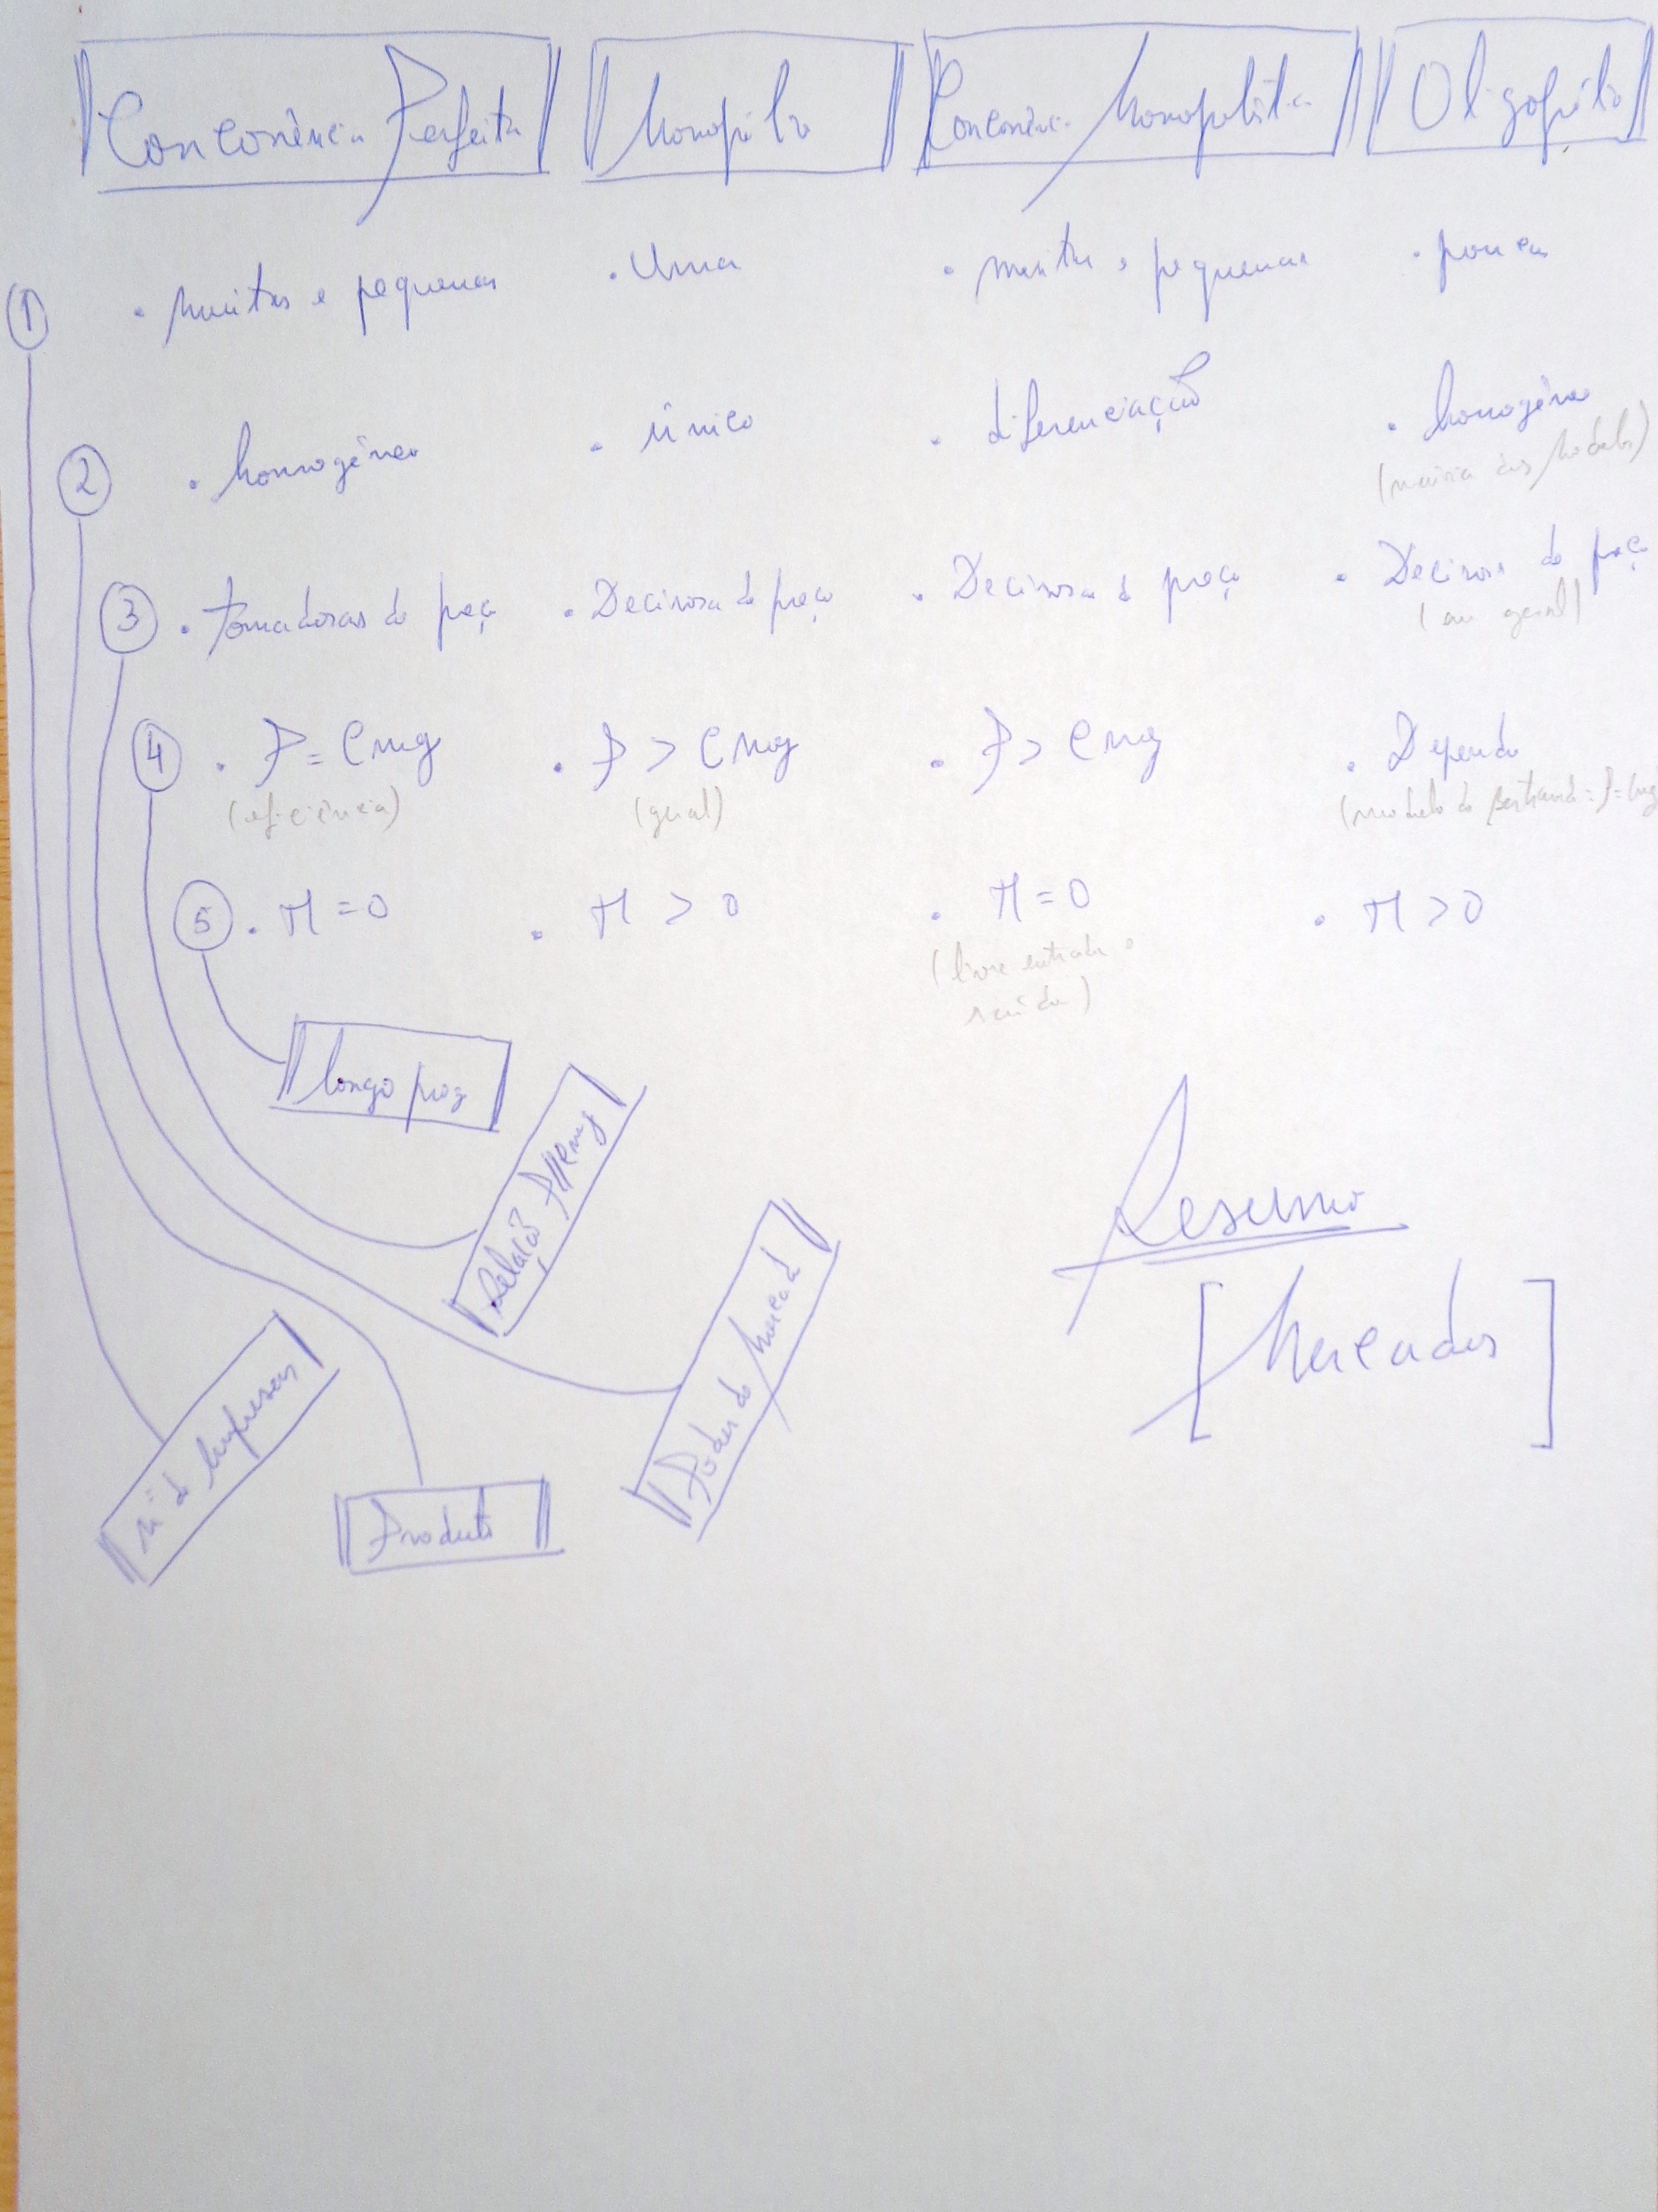 Concorrência Perfeita Monopólio Concorrência Monopolista Oligopólio
① • muitas e pequenas • Uma • muitas e pequenas • poucas
② • homogéneo • único • diferenciação • homogéneo
(maioria dos Modelos)
③ • Tomadoras de preço • Decisora de preço • Decisora de preço • Decisora de preço
(em geral)
④ • P = Cmg • P > Cmg • P > Cmg • Depende
(eficiência) (geral) (modelo de Bertrand: P = Cmg
⑤ • π = 0 • π > 0 • π = 0 • π > 0
(livre entrada e
saída)
Longo prazo
Relação P//Cmg
Poder de Mercado
nº de Empresas
Produto
Resumo
[Mercados]